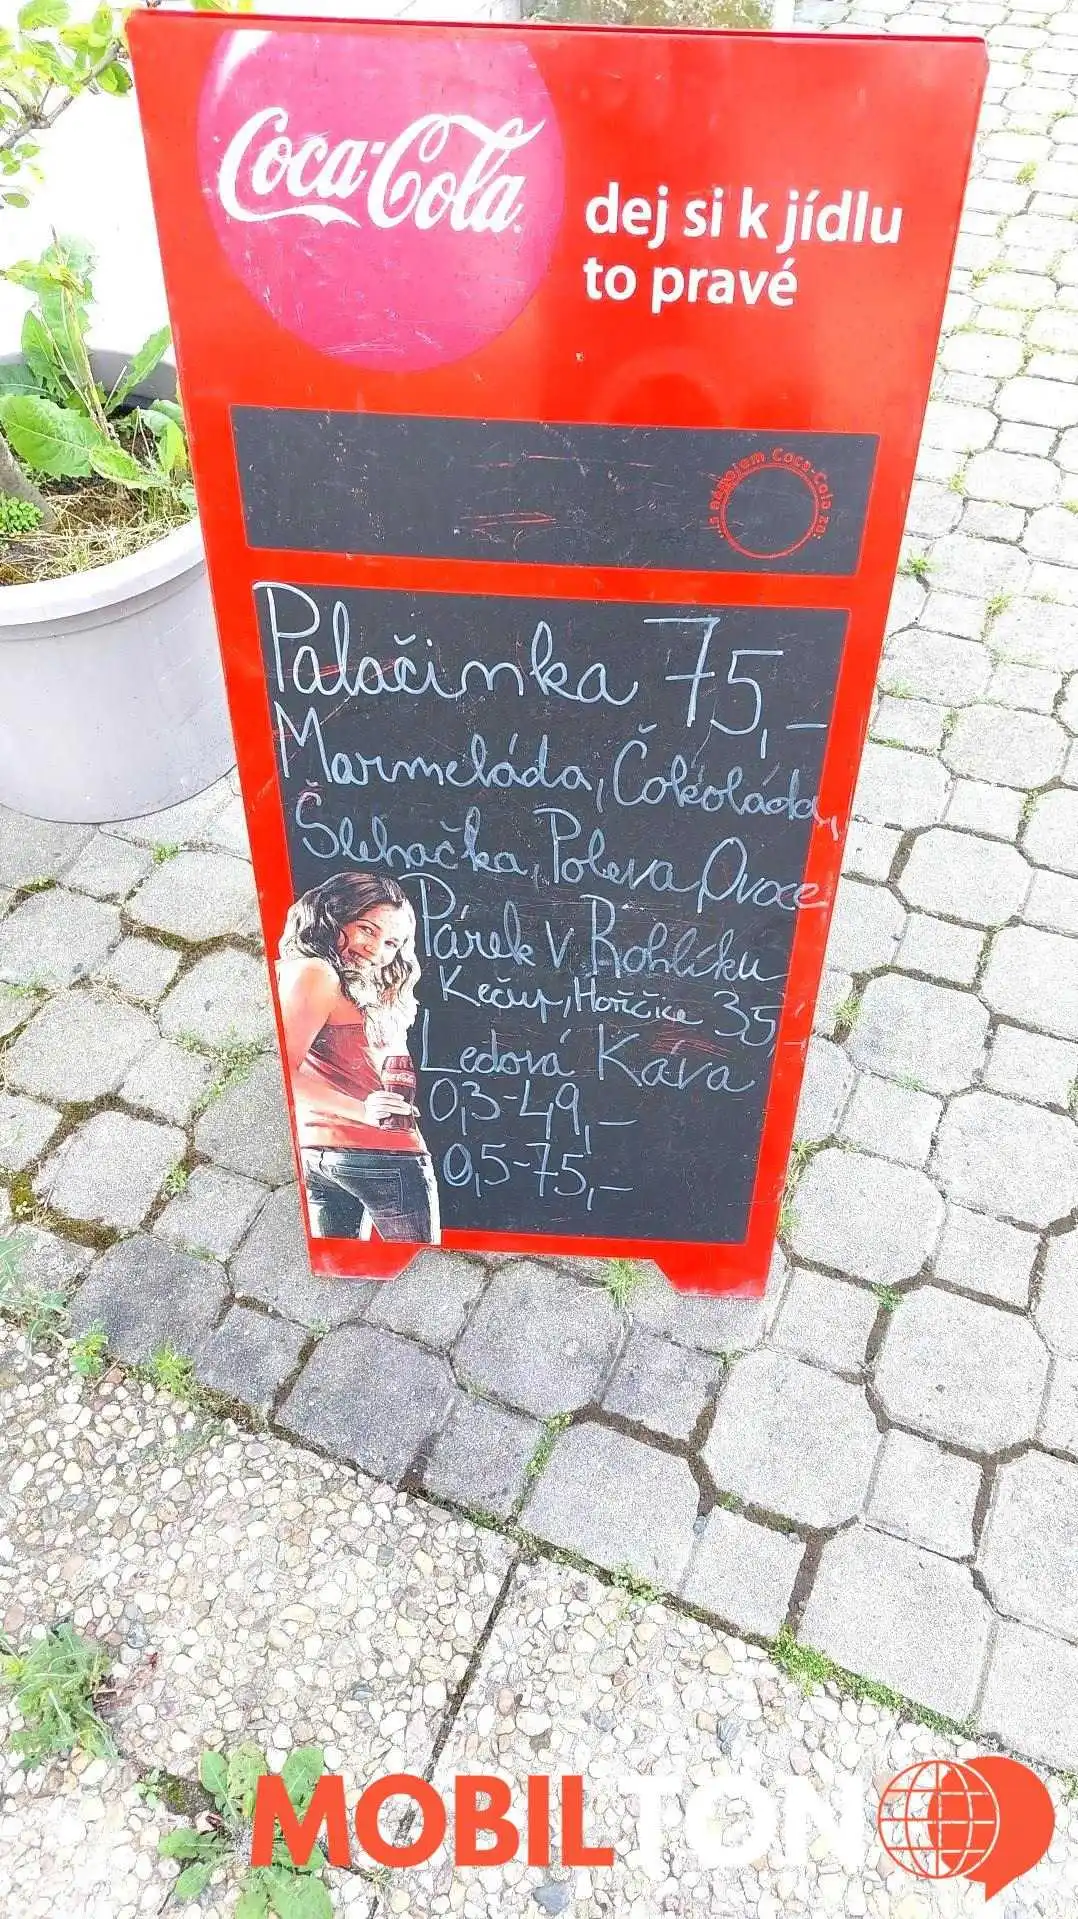 Coca-Cola
dej si k jídlu
to pravé
Coca-Cola za:
Palačinka 75,-
Marmeláda, Čokoláda,
Šlehačka, Poleva, Ovoce
Párek v Rohlíku
Kečup, Hořčice 35,
Ledová Káva
0,3-49,-
0,5-75,-
MOBILTON